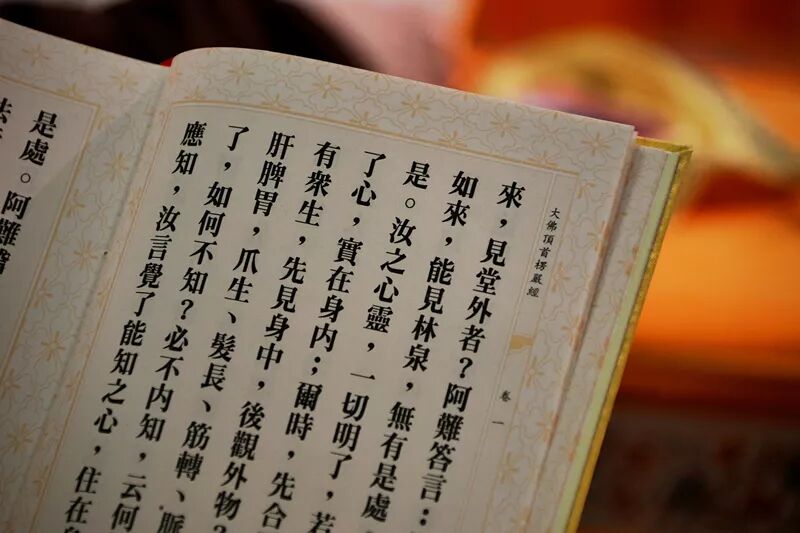 大佛頂首楞嚴經 卷一
來，見堂外者？阿難答言：
如來，能見林泉，無有是處
是。汝之心靈，一切明了，若
了心，實在身內；爾時，先合
有衆生，先見身中，後觀外物？
肝脾胃，爪生、髮長、筋轉、脈
了，如何不知？必不內知，云何
應知，汝言覺了能知之心，住在
是處。阿難稽
法